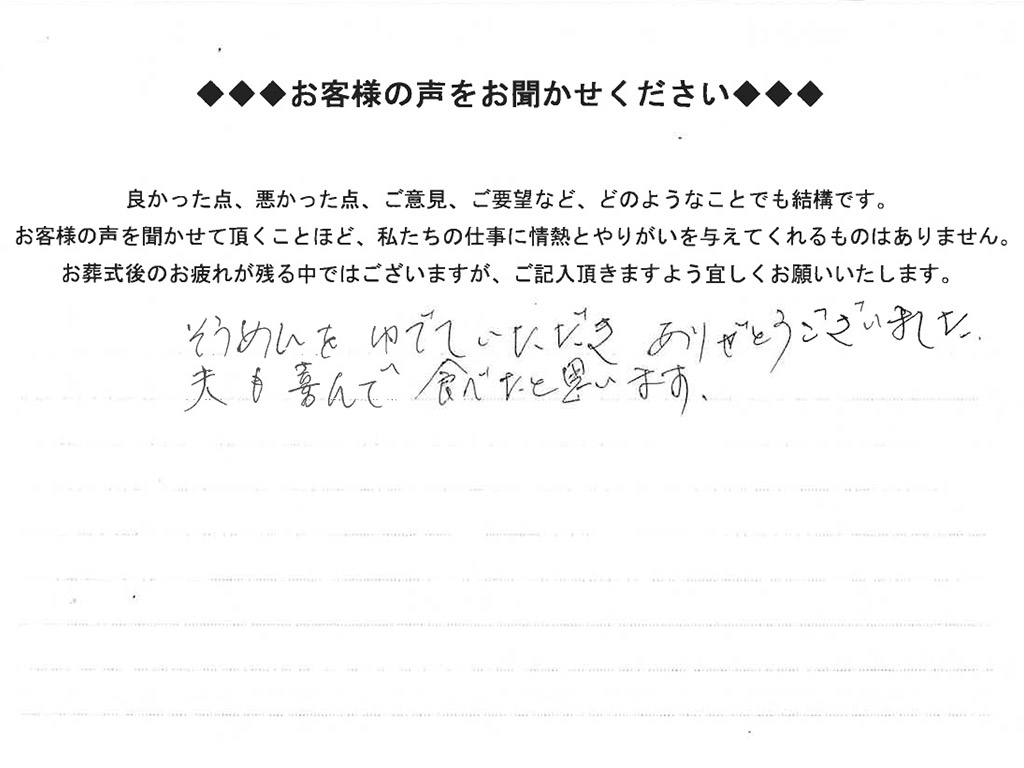 ◆◆◆お客様の声をお聞かせください◆◆◆
良かった点、悪かった点、ご意見、ご要望など、どのようなことでも結構です。
お客様の声を聞かせて頂くことほど、私たちの仕事に情熱とやりがいを与えてくれるものはありません。
お葬式後のお疲れが残る中ではございますが、ご記入頂きますよう宜しくお願いいたします。
そうめんを ゆでていただき ありがとうございました.
夫も喜んで 食べたと思います.